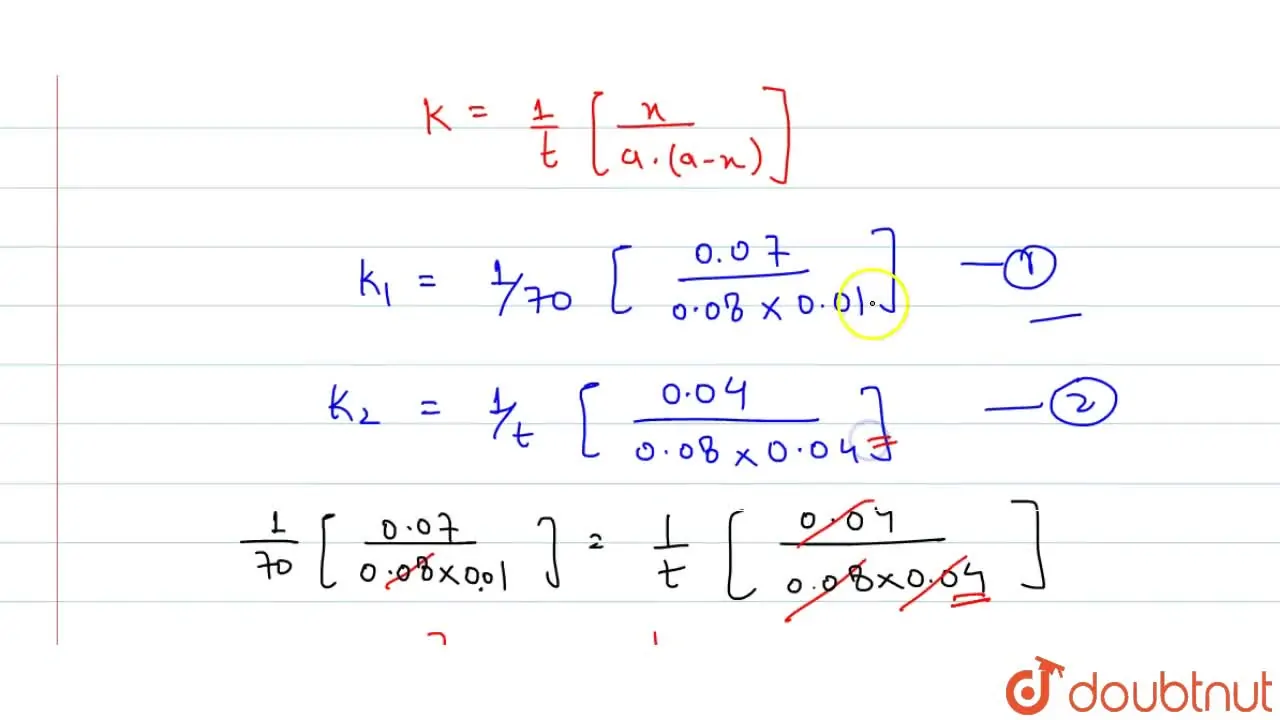 K = 1/t [ x / a.(a-x) ]
K1 = 1/70 [ 0.07 / 0.08 × 0.01 ] — 1
K2 = 1/t [ 0.04 / 0.08 × 0.04 ] — 2
1/70 [ 0.07 / 0.08×0.01 ] = 1/t [ 0.04 / 0.08×0.04 ]
doubtnut